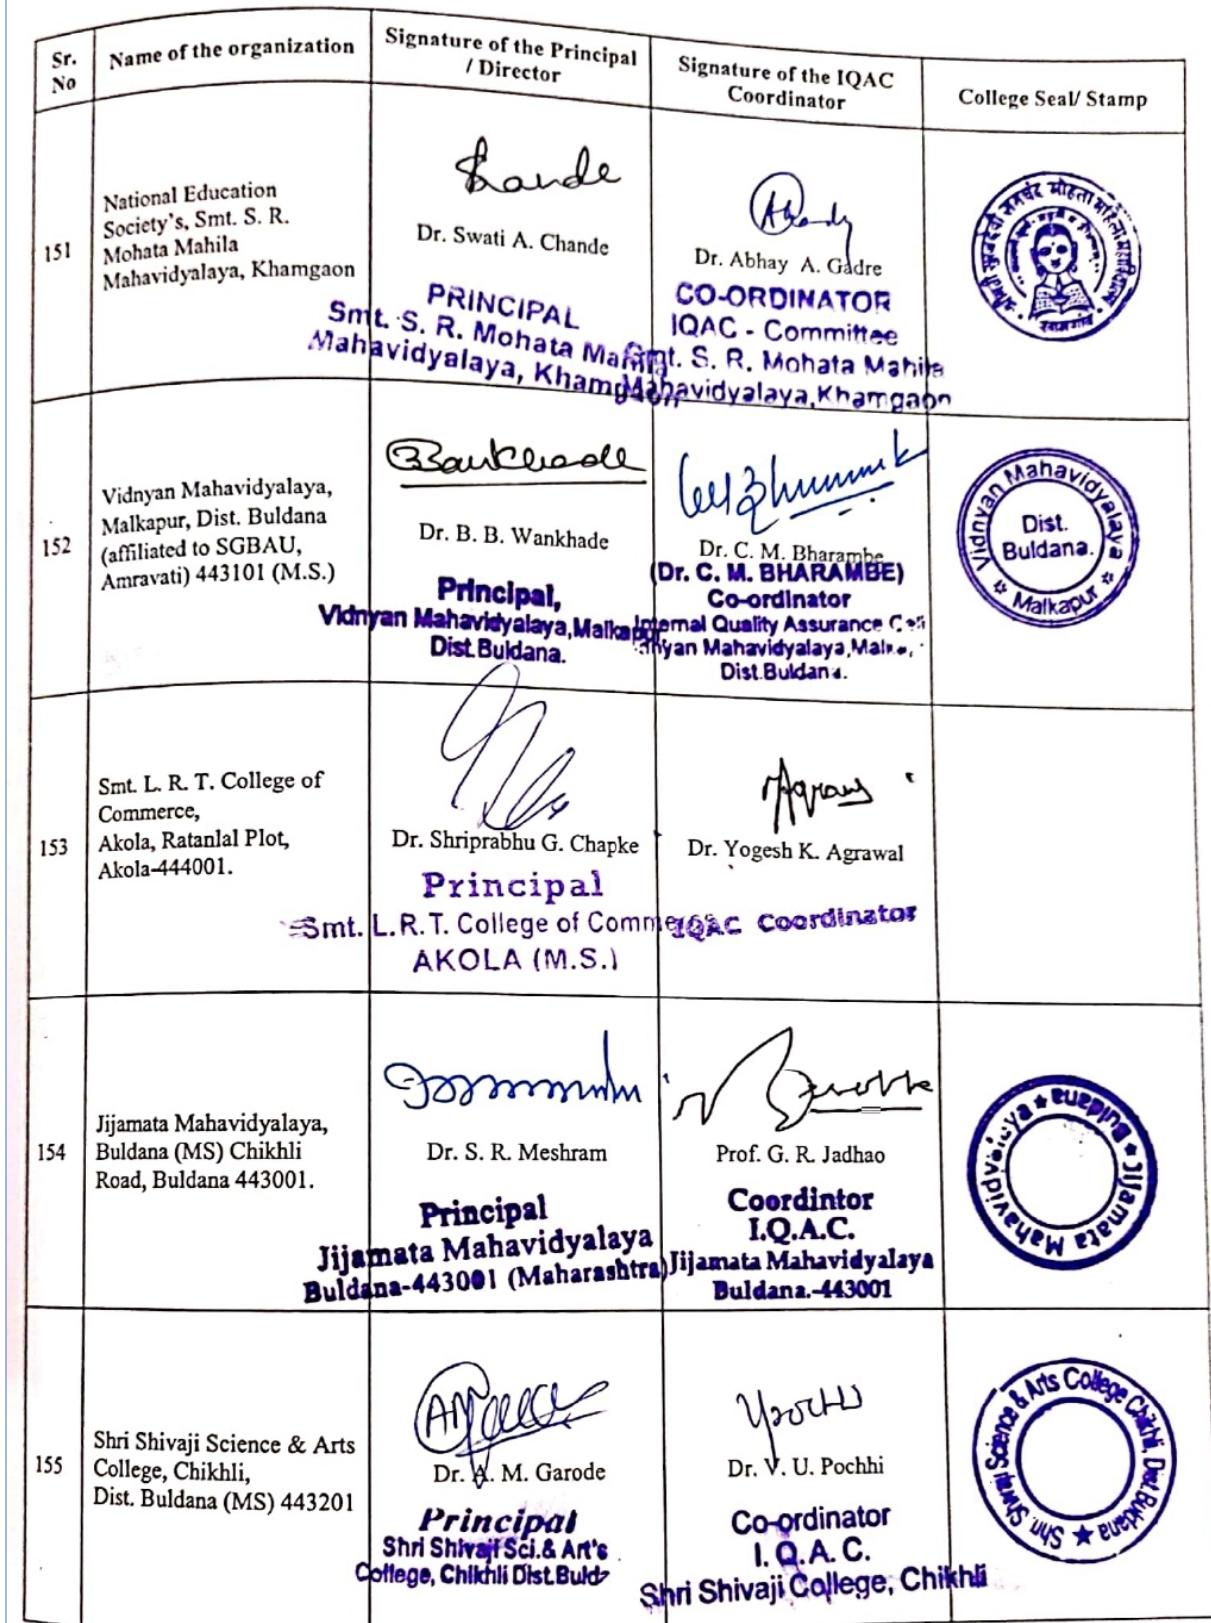 Sr.
No
Name of the organization
Signature of the Principal
/ Director
Signature of the IQAC
Coordinator
College Seal/ Stamp
151
National Education
Society's, Smt. S. R.
Mohata Mahila
Mahavidyalaya, Khamgaon
Dr. Swati A. Chande
PRINCIPAL
Smt. S. R. Mohata Mahila
Mahavidyalaya, Khamgaon
Dr. Abhay A. Gadre
CO-ORDINATOR
IQAC - Committee
Smt. S. R. Mohata Mahila
Mahavidyalaya,Khamgaon
152
Vidnyan Mahavidyalaya,
Malkapur, Dist. Buldana
(affiliated to SGBAU,
Amravati) 443101 (M.S.)
Dr. B. B. Wankhade
Principal,
Vidnyan Mahavidyalaya,Malkapur
Dist.Buldana.
Dr. C. M. Bharambe
(Dr. C. M. BHARAMBE)
Co-ordinator
Internal Quality Assurance Cell
Mahavidyalaya,
Dist.Buldana.
Vidnyan Mahavidyalaya
Dist.
Buldana.
Malkapur
153
Smt. L. R. T. College of
Commerce,
Akola, Ratanlal Plot,
Akola-444001.
Dr. Shriprabhu G. Chapke
Principal
Smt. L.R.T. College of Commerce
AKOLA (M.S.)
Agraw
Dr. Yogesh K. Agrawal
IQAC Coordinator
154
Jijamata Mahavidyalaya,
Buldana (MS) Chikhli
Road, Buldana 443001.
Dr. S. R. Meshram
Principal
Jijamata Mahavidyalaya
Buldana-443001 (Maharashtra)
Prof. G. R. Jadhao
Coordintor
I.Q.A.C.
Jijamata Mahavidyalaya
Buldana.-443001
Jijamata Mahavidyalaya
Buldana
155
Shri Shivaji Science & Arts
College, Chikhli,
Dist. Buldana (MS) 443201
Dr. A. M. Garode
Principal
Shri Shivaji Sci.& Art's
College, Chikhli Dist.Buld
Dr. V. U. Pochhi
Co-ordinator
I. Q. A. C.
Shri Shivaji College, Chikhli
Shri. Shivaji Science & Arts College Chikhli, Dist.Buldana